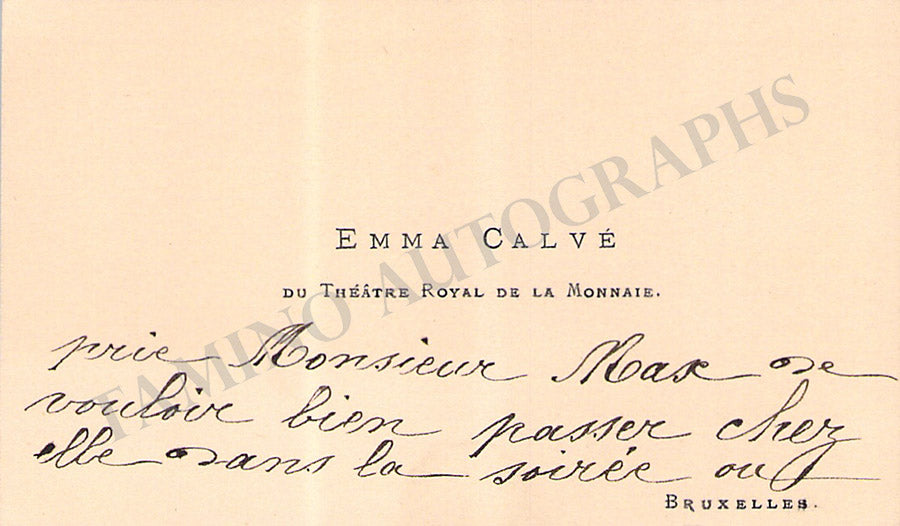 EMMA CALVÉ
DU THÉÂTRE ROYAL DE LA MONNAIE.
prie Monsieur Max de
vouloir bien passer chez
elle dans la soirée ou
BRUXELLES.
TAMINO AUTOGRAPHS